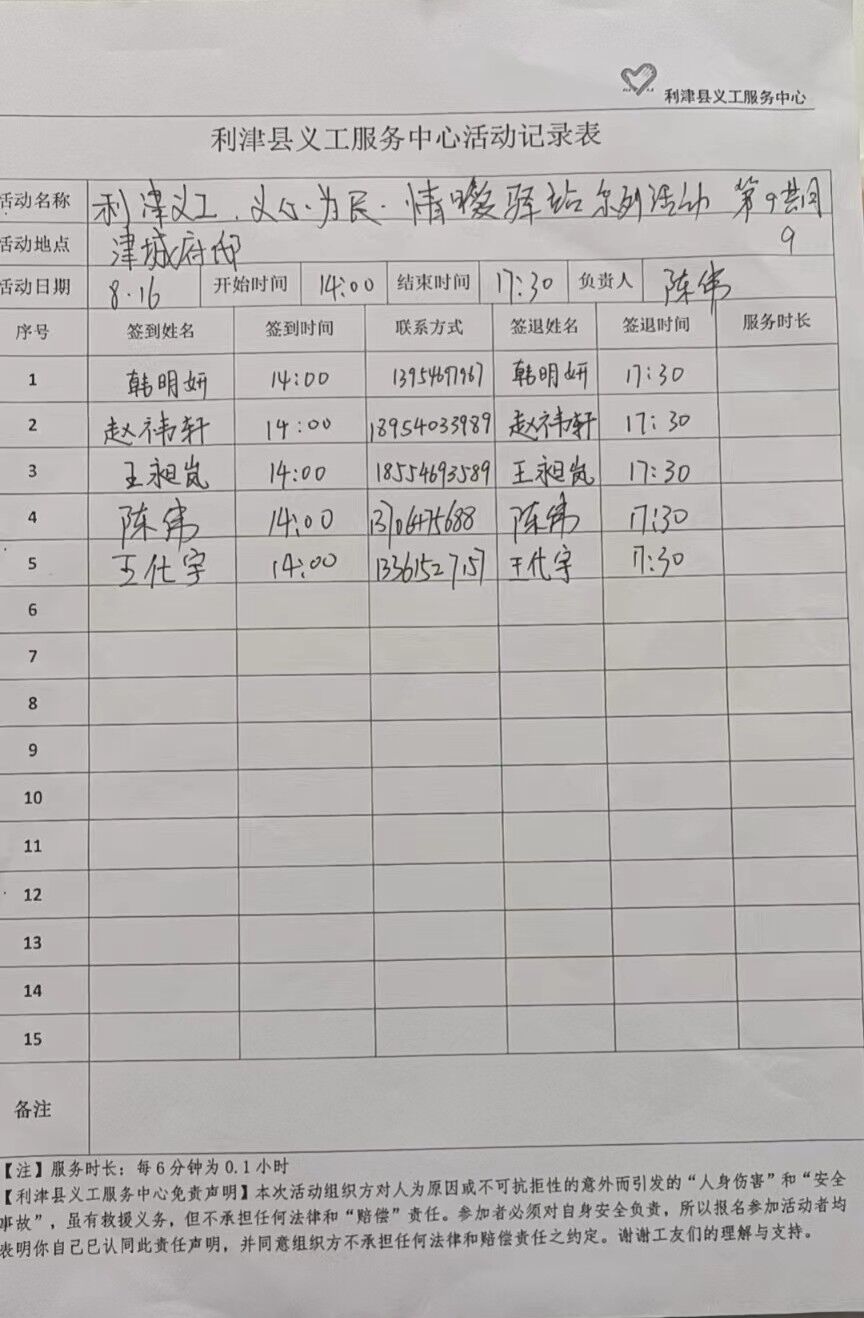 利津县义工服务中心
利津县义工服务中心活动记录表
活动名称 利津义工.义心·为民·情暖驿站系列活动 第9期
活动地点 津城府邸 9
活动日期 8.16 开始时间 14:00 结束时间 17:30 负责人 陈伟
序号 签到姓名 签到时间 联系方式 签退姓名 签退时间 服务时长
1 韩明妍 14:00 13954697967 韩明妍 17:30
2 赵祎轩 14:00 18954033989 赵祎轩 17:30
3 王昶岚 14:00 18554693589 王昶岚 17:30
4 陈伟 14:00 13706475688 陈伟 17:30
5 王仕宇 14:00 13361527157 王仕宇 17:30
6
7
8
9
10
11
12
13
14
15
备注
【注】服务时长：每6分钟为0.1小时
【利津县义工服务中心免责声明】本次活动组织方对人为原因或不可抗拒性的意外而引发的“人身伤害”和“安全
事故”，虽有救援义务，但不承担任何法律和“赔偿”责任。参加者必须对自身安全负责，所以报名参加活动者均
表明你自己已认同此责任声明，并同意组织方不承担任何法律和赔偿责任之约定。谢谢工友们的理解与支持。